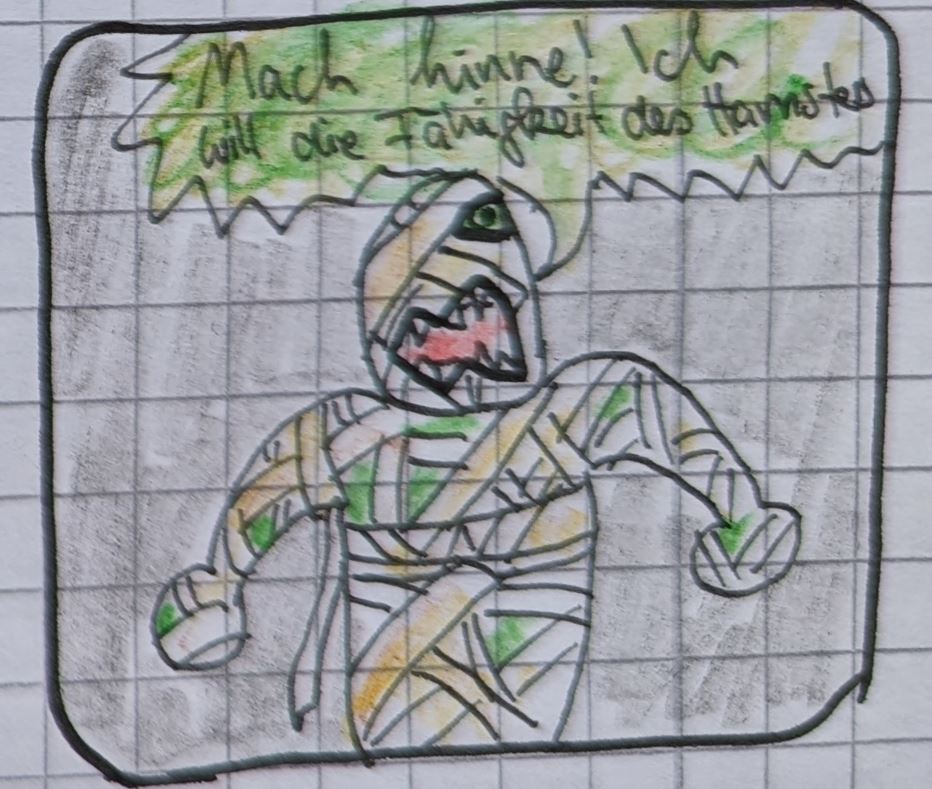 Mach hinne! Ich
will die Fähigkeit des Hamsters